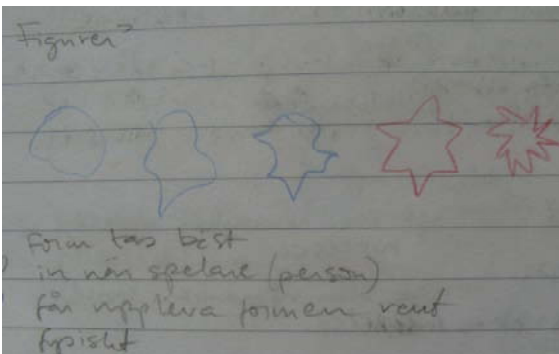 Figurer?
Form tas bäst
in när spelare (person)
får uppleva formen rent
fysiskt